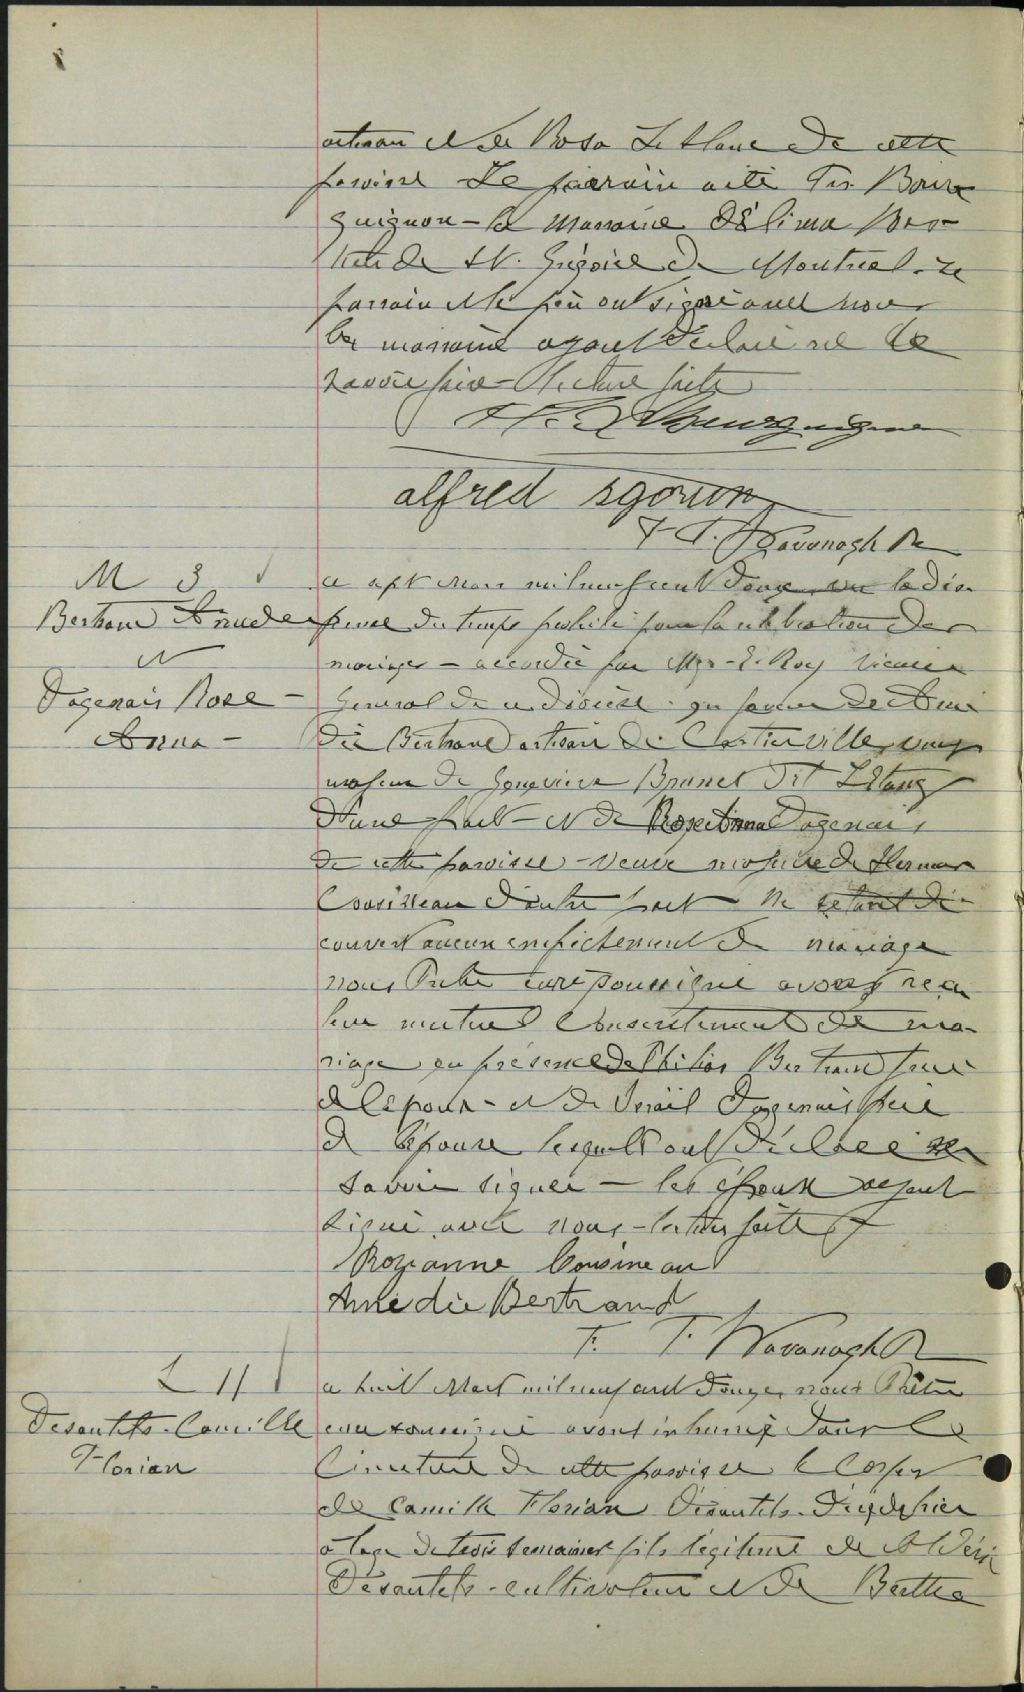 artisan et de Rosa Leblanc de cette
paroisse Le parrain a été Frs. Bour
guignon - la marraine Délima
de St. Grégoire de Montreal. Le
parrain et le père ont signé avec nous
la marraine ayant déclaré ne le
savoir faire - lecture faite
Bourguignon
alfred
F. T. Kavanagh Ptr
M 3
Bertrand Amédée
et
Dagenais Rose -
Anna -
Le sept Mars mil neuf cent douze vu la dis
pense du temps prohibé pour la célébration des
mariages - accordée par Mgr - E. Roy Vicaire
General de ce diocèse en faveur de Amé
dée Bertrand artisan de Cartierville, veuf
majeur de Geneviève Brunet dit Létang
d'une part - et de Rose Anna Dagenais
de cette paroisse - veuve majeure de Herman
Cousineau d'autre part Ne s'étant dé-
couvert aucun empêchement de mariage
nous Prêtre curé soussigné avons reçu
leur mutuel consentement de ma-
riage en présence de Philias Bertrand frère
de l'époux - et de Israël Dagenais père
de l'épouse lesquels ont déclaré ne
savoir signer - les époux ayant
signé avec nous - lecture faite
Rozanne Cousineau
Amédée Bertrand
F. T. Kavanagh Ptr
S 11
Desautels - Camille
Florian
Le huit Mars mil neuf cent douze, nous Prêtre
curé soussigné avons inhumé dans le
Cimetière de cette paroisse le Corps
de Camille Florian Désautels. Décédé hier
à l'age de trois semaines fils légitime de Aldéric
Désautels - cultivateur et de Berthe